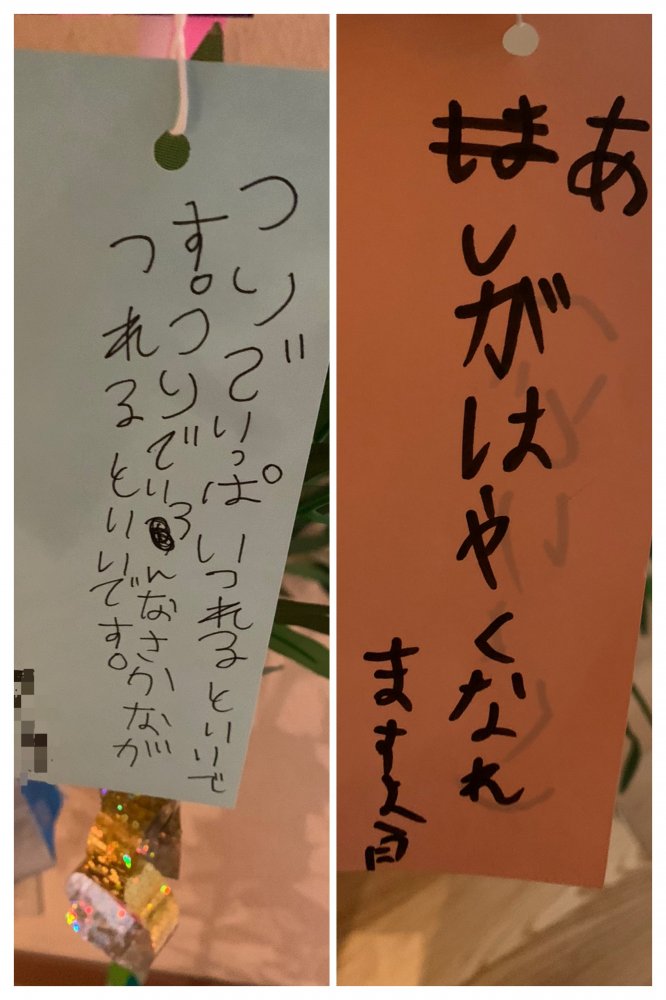 つりでいっぱいつれるといいで
す。つりでいろんなさかなが
つれるといいです。
あ
しがはやくなれ
ますよ